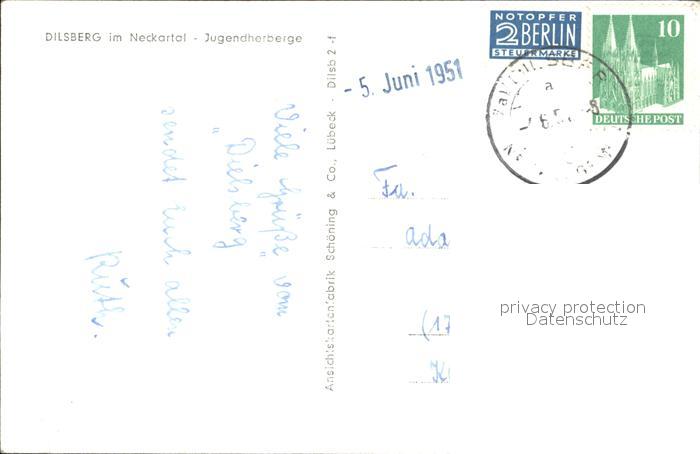 DILSBERG im Neckartal - Jugendherberge
Viele Grüße vom
"Dielsberg"
sendet Euch allen
Ruth.
Ansichtskartenfabrik Schöning & Co., Lübeck - Dilsb 2 -f
- 5. Juni 1951
NOTOPFER
2 BERLIN
STEUERMARKE
10
DEUTSCHE POST
a
Fa.
(17
privacy protection
Datenschutz